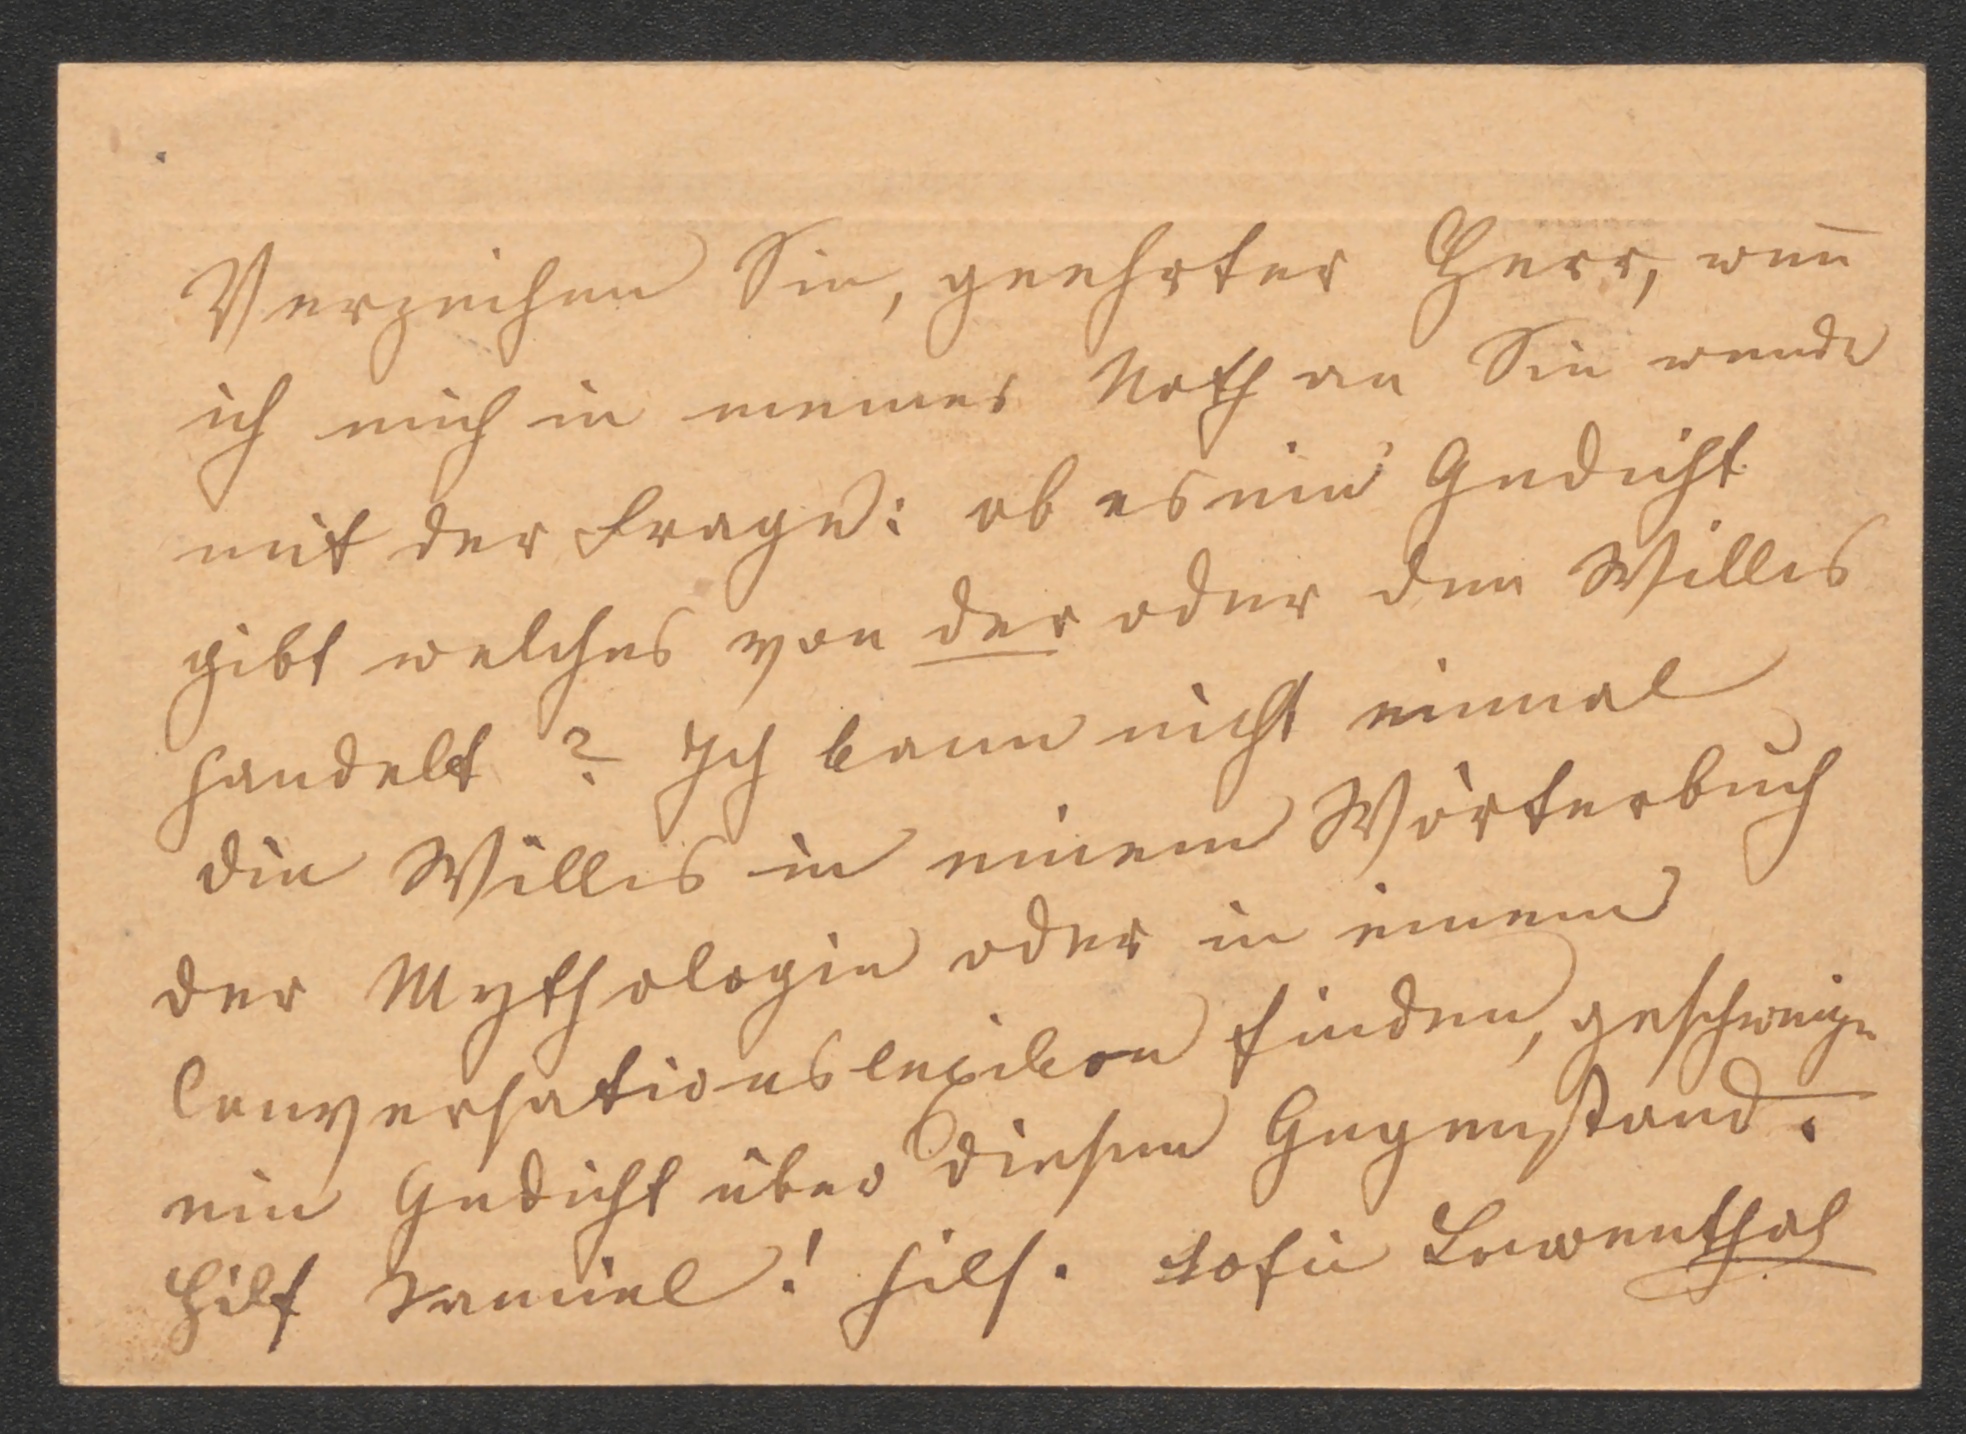 Verzeihen Sie, geehrter Herr, weñ
ich mich in meiner Noth an Sie wende
mit der Frage: ob es ein Gedicht
gibt welches von der oder den Willis
handelt? Ich kann nicht einmal
die Willis in einem Wörterbuch
der Mythologie oder in einem
Conversationslexikon finden, geschweige
ein Gedicht über diesen Gegenstand.
Hilf Samiel! hilf. Sofie Löwenthal